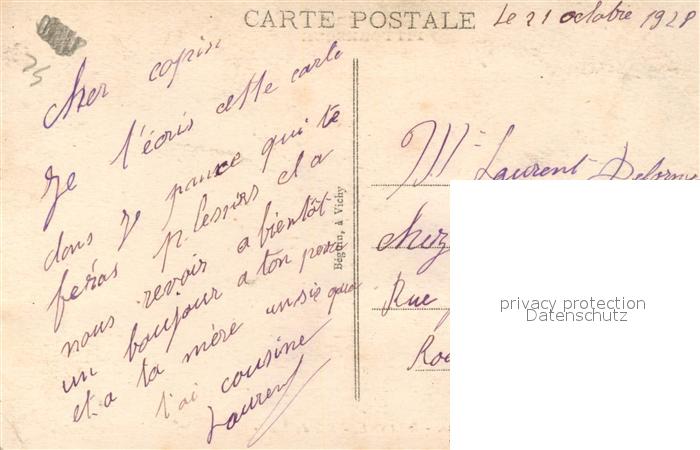 CARTE POSTALE
Le 21 octobre 1928
Cher copin
Je t'écris cette carte
dons je pance qui te
feras plessirs et a
nous revoir a bientôt
un boujour a ton pere
et a ta mère
t'ai cousine
Laurent
Béguin, à Vichy
M. Laurent Delorme
Chez
Rue
privacy protection
Datenschutz